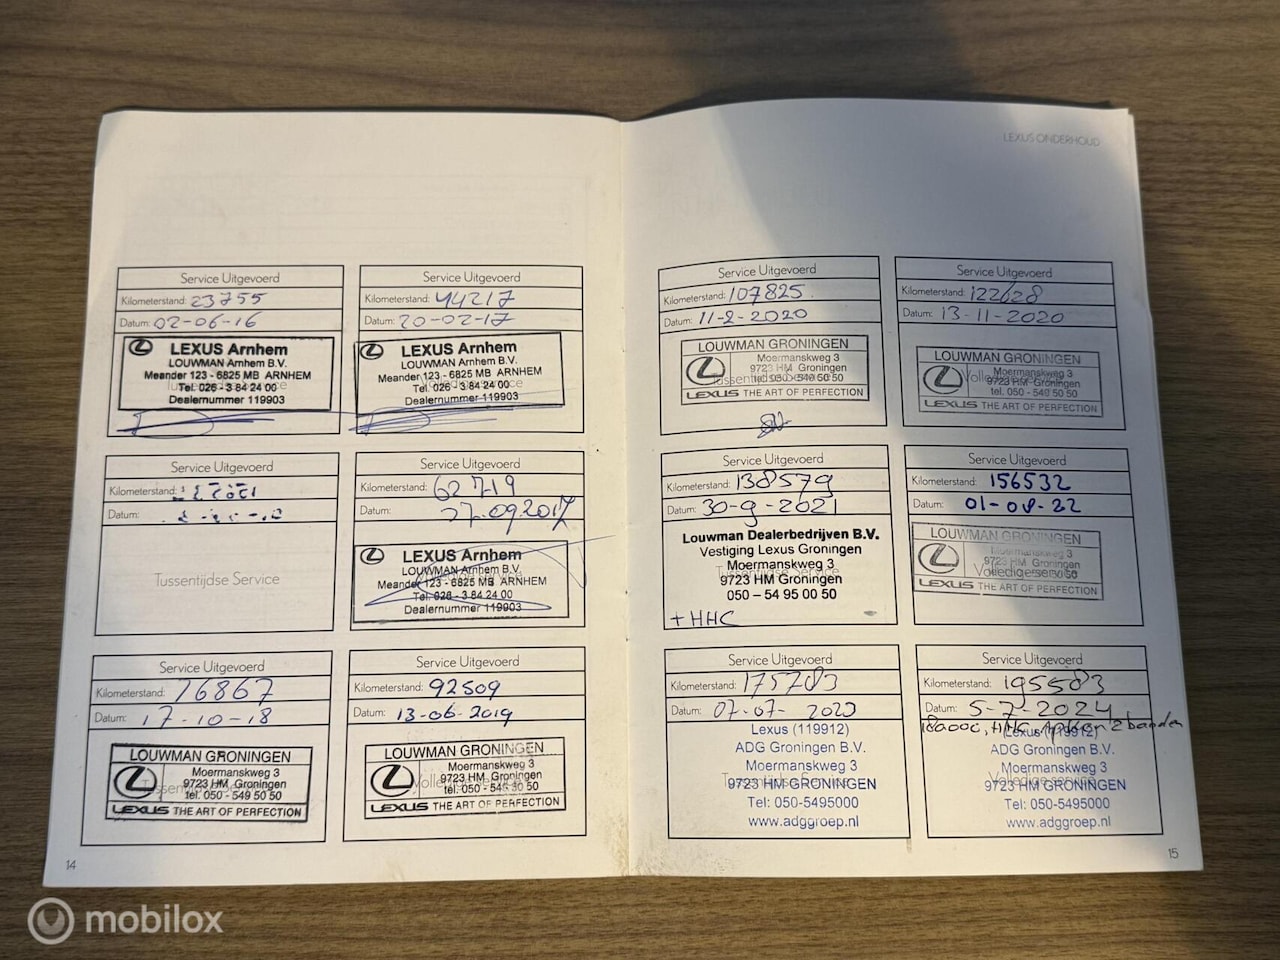 LEXUS ONDERHOUD
Service Uitgevoerd
Kilometerstand: 23755
Datum: 02-06-16
LEXUS Arnhem
LOUWMAN Arnhem B.V.
Meander 123 - 6825 MB ARNHEM
Tussentijdse Service
Tel. 026 - 3 84 24 00
Dealernummer 119903
Service Uitgevoerd
Kilometerstand: 44217
Datum: 20-02-17
LEXUS Arnhem
LOUWMAN Arnhem B.V.
Meander 123 - 6825 MB ARNHEM
Volledige Service
Tel. 026 - 3 84 24 00
Dealernummer 119903
Service Uitgevoerd
Kilometerstand:
Datum:
Tussentijdse Service
Service Uitgevoerd
Kilometerstand: 62719
Datum: 27.09.2017
LEXUS Arnhem
LOUWMAN Arnhem B.V.
Meander 123 - 6825 MB ARNHEM
Tel. 026 - 3 84 24 00
Dealernummer 119903
Service Uitgevoerd
Kilometerstand: 76867
Datum: 17-10-18
LOUWMAN GRONINGEN
Moermanskweg 3
9723 HM Groningen
Tussentijdse Service
tel. 050 - 549 50 50
LEXUS THE ART OF PERFECTION
Service Uitgevoerd
Kilometerstand: 92509
Datum: 13-06-2019
LOUWMAN GRONINGEN
Moermanskweg 3
9723 HM Groningen
Volledige service
tel. 050 - 549 50 50
LEXUS THE ART OF PERFECTION
14
Service Uitgevoerd
Kilometerstand: 107825
Datum: 11-2-2020
LOUWMAN GRONINGEN
Moermanskweg 3
9723 HM Groningen
Tussentijdse Service
tel. 050 - 549 50 50
LEXUS THE ART OF PERFECTION
Service Uitgevoerd
Kilometerstand: 122628
Datum: 13-11-2020
LOUWMAN GRONINGEN
Moermanskweg 3
Volledige service
9723 HM Groningen
tel. 050 - 549 50 50
LEXUS THE ART OF PERFECTION
Service Uitgevoerd
Kilometerstand: 138579
Datum: 30-9-2021
Louwman Dealerbedrijven B.V.
Vestiging Lexus Groningen
Moermanskweg 3
Tussentijdse Service
9723 HM Groningen
050 – 54 95 00 50
+ HHC
Service Uitgevoerd
Kilometerstand: 156532
Datum: 01-08-22
LOUWMAN GRONINGEN
Moermanskweg 3
Volledige service
LEXUS THE ART OF PERFECTION
Service Uitgevoerd
Kilometerstand: 175783
Datum: 07-07-
Lexus (119912)
ADG Groningen B.V.
Moermanskweg 3
Tussentijdse Service
9723 HM GRONINGEN
Tel: 050-5495000
www.adggroep.nl
Service Uitgevoerd
Kilometerstand: 195583
Datum: 5-7-2024
HHC, Apk en 2 banden
Lexus (119912)
ADG Groningen B.V.
Moermanskweg 3
Volledige service
9723 HM GRONINGEN
Tel: 050-5495000
www.adggroep.nl
15
mobilox